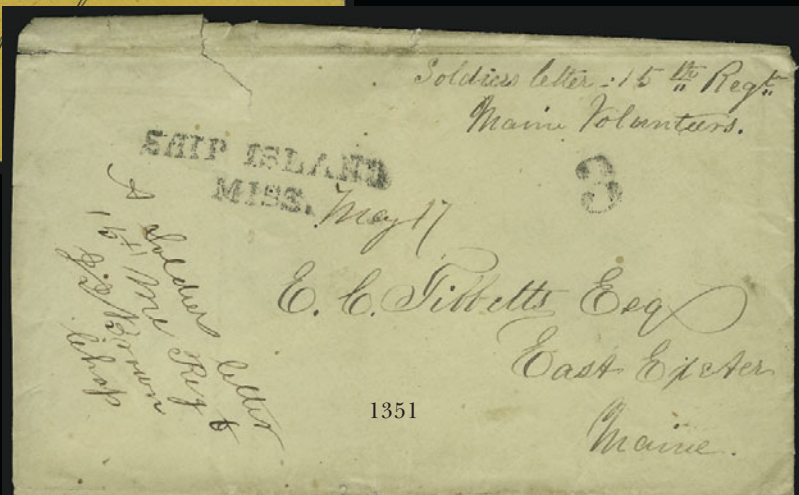 Soldiers letter : 15th Regt
Maine Volunteers.
SHIP ISLAND
MISS.
May 17
3
A Soldiers letter
15th Me Regt
Brown
Chap
E. C. Tibbetts Esq
East Exeter
Maine.
1351